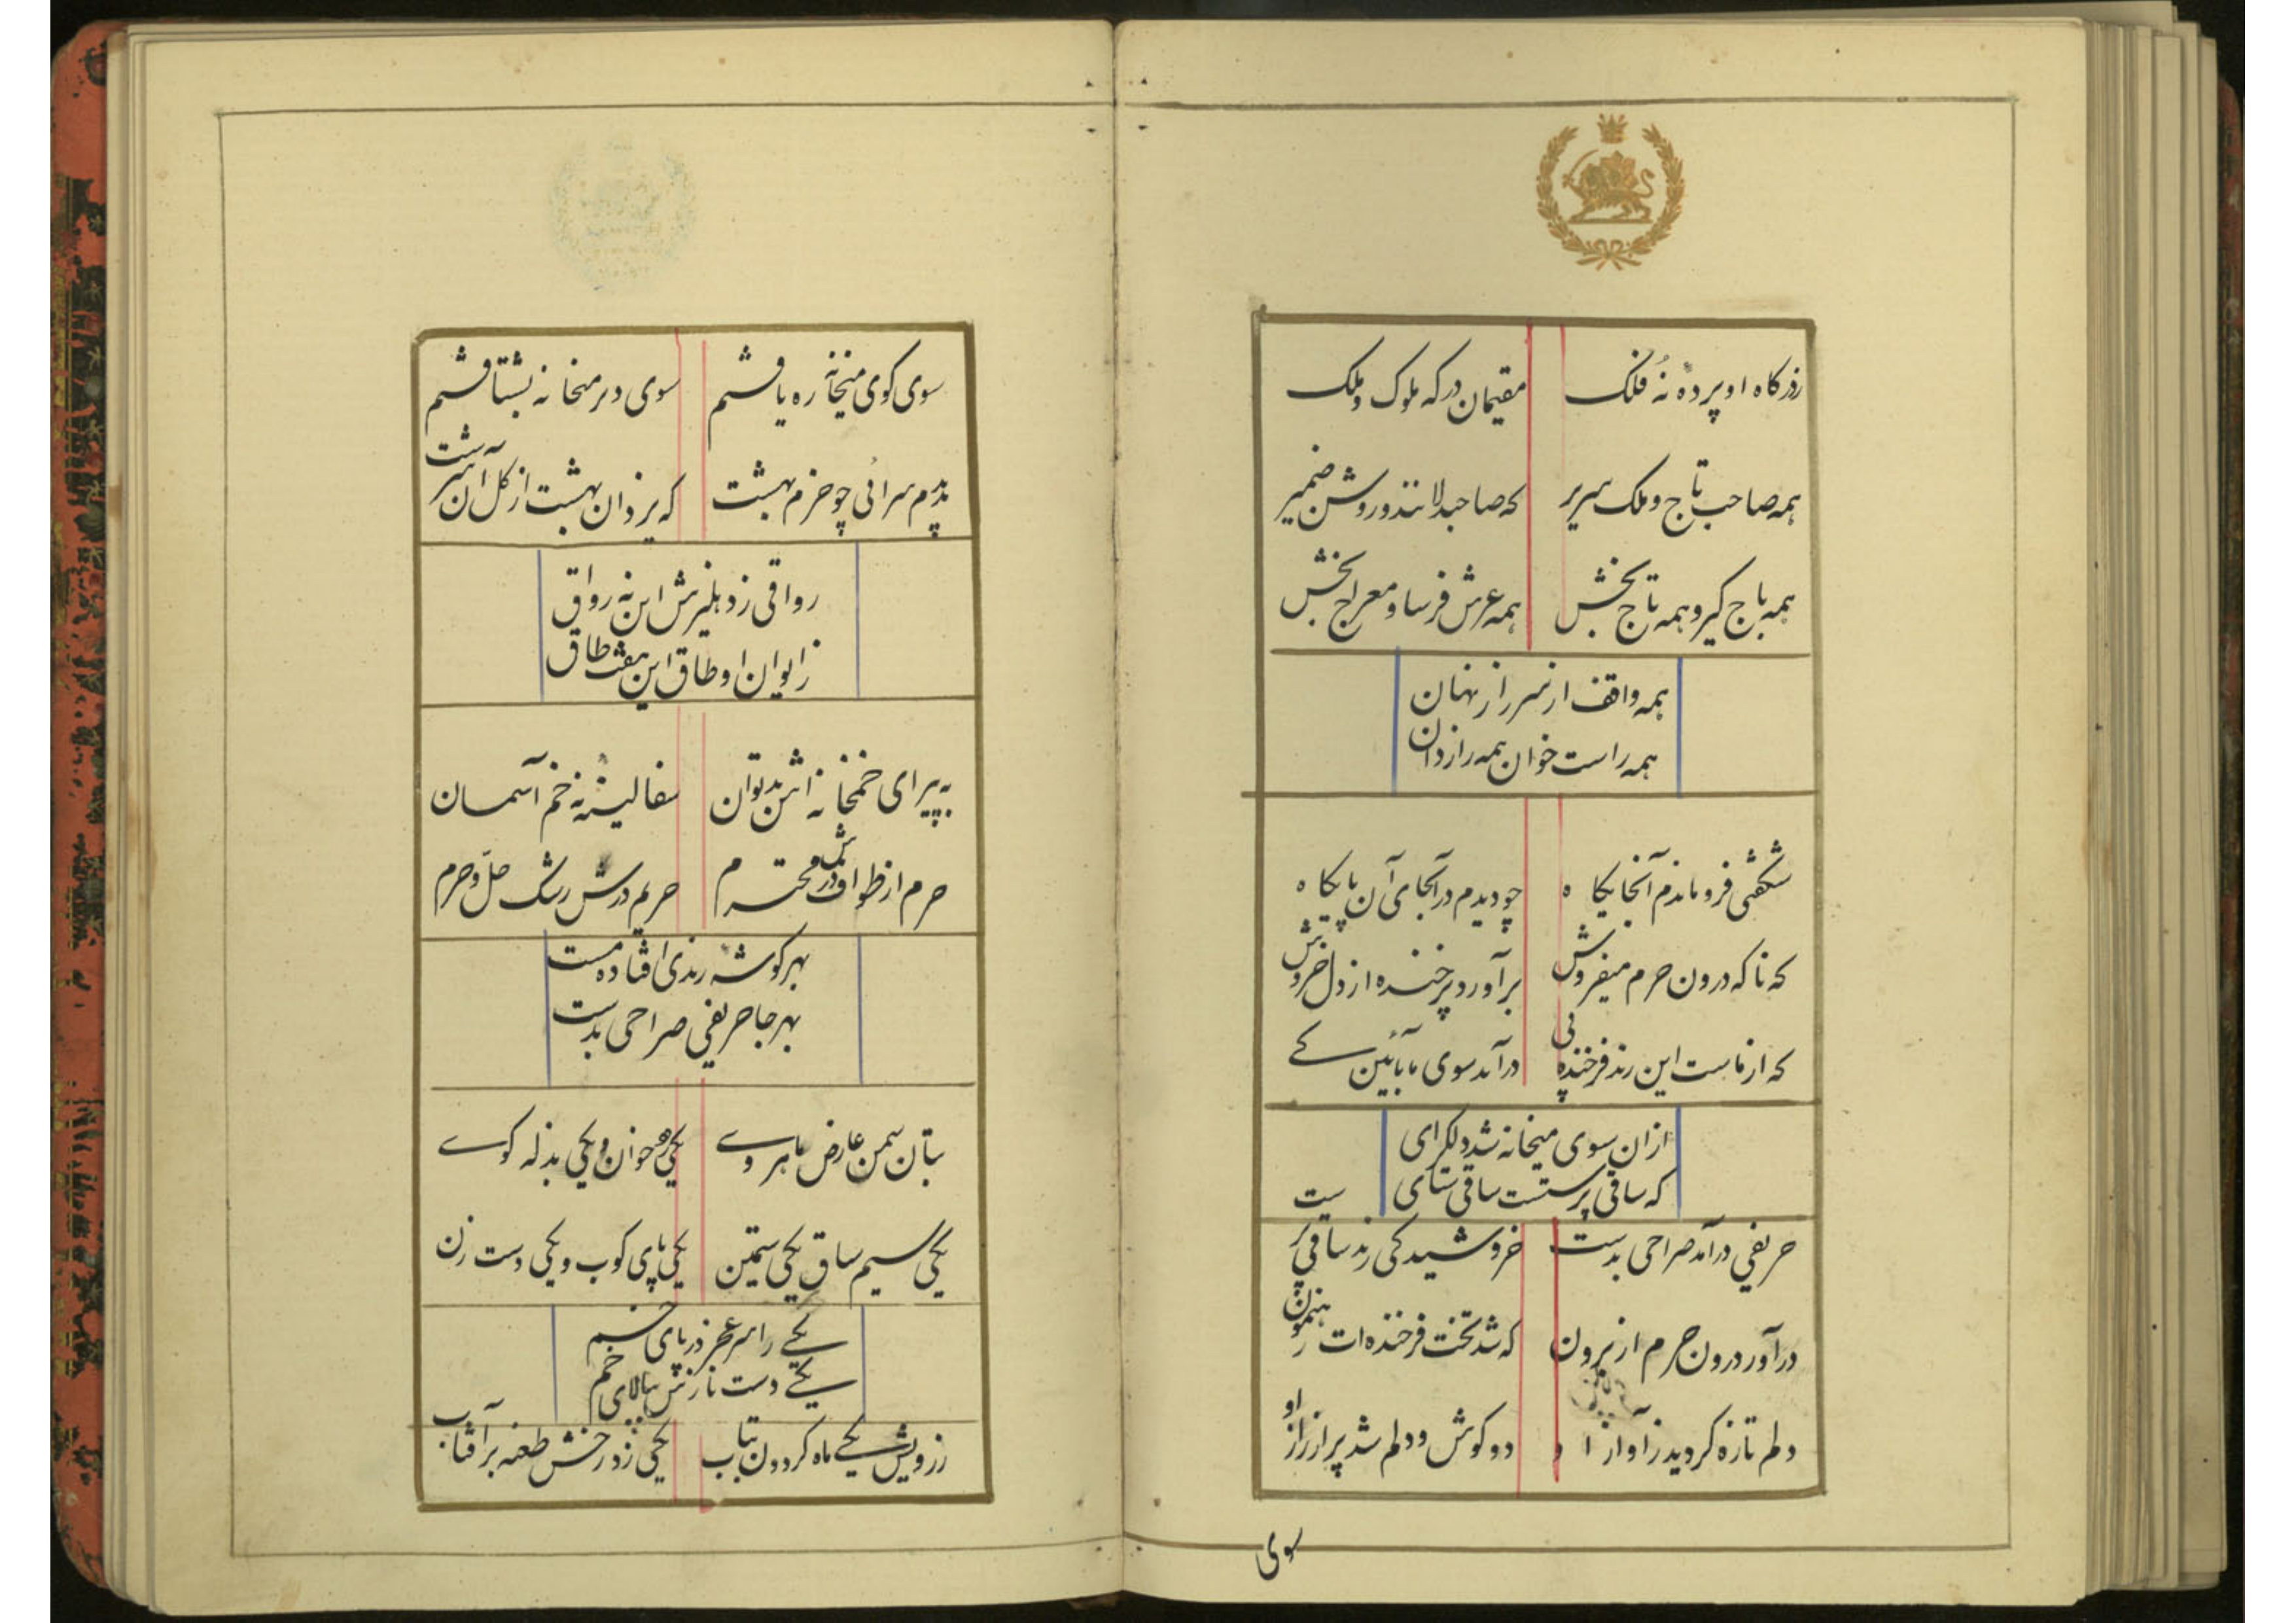 زدرگاه او پرده نُه فلک مقیمان درگه ملوک و ملک
همه صاحب تاج و ملک سریر که صاحبدلانند و روشن ضمیر
همه باج گیر و همه تاج بخش همه عرش فرسا و معراج بخش
همه واقف از سر راز نهان
همه راست خوان همه رازدان
شگفتی فرو ماندم آنجایگاه چو دیدم در آنجای آن پایگاه
که ناگه درون حرم میفروش برآورد پرخنده از دل خروش
که از ماست این رند فرخنده پی درآمد سوی ما بآئین کی
ازان سوی میخانه شد دلگرای
که ساقی پرستست ساقی ستای
حریفی درآمد صراحی بدست خروشید کی رند ساقی پرست
درآور درون حرم از برون که شد تخت فرخنده ات رهنمون
دلم تازه گردید ز آواز او دو گوش و دلم شد پر از راز او
سوی
سوی کوی میخانه ره یافتم سوی در میخانه بشتافتم
بدیدم سرائی چو خرم بهشت که یزدان بهشت از گل آن سرشت
رواقی ز دهلیزش این نه رواق
ز ایوان او طاق این هفت طاق
به پیرای خمخانه اش بدتوان سفالینه خم آسمان
حرم از طواف درش محترم حریم درش رشک حلّ و حرم
بهر گوشه رندی افتاده مست
بهر جا حریفی صراحی بدست
بتان سمن عارض ماهروی یکی خوان و یکی بذله گوی
یکی سیم ساق یکی سیمتن یکی پای کوب و یکی دست زن
یکی را سر عجز در پای خم
یکی دست نازش ببالای خم
ز رویش یکی ماه گردون بتاب یکی زد رخش طعنه بر آفتاب